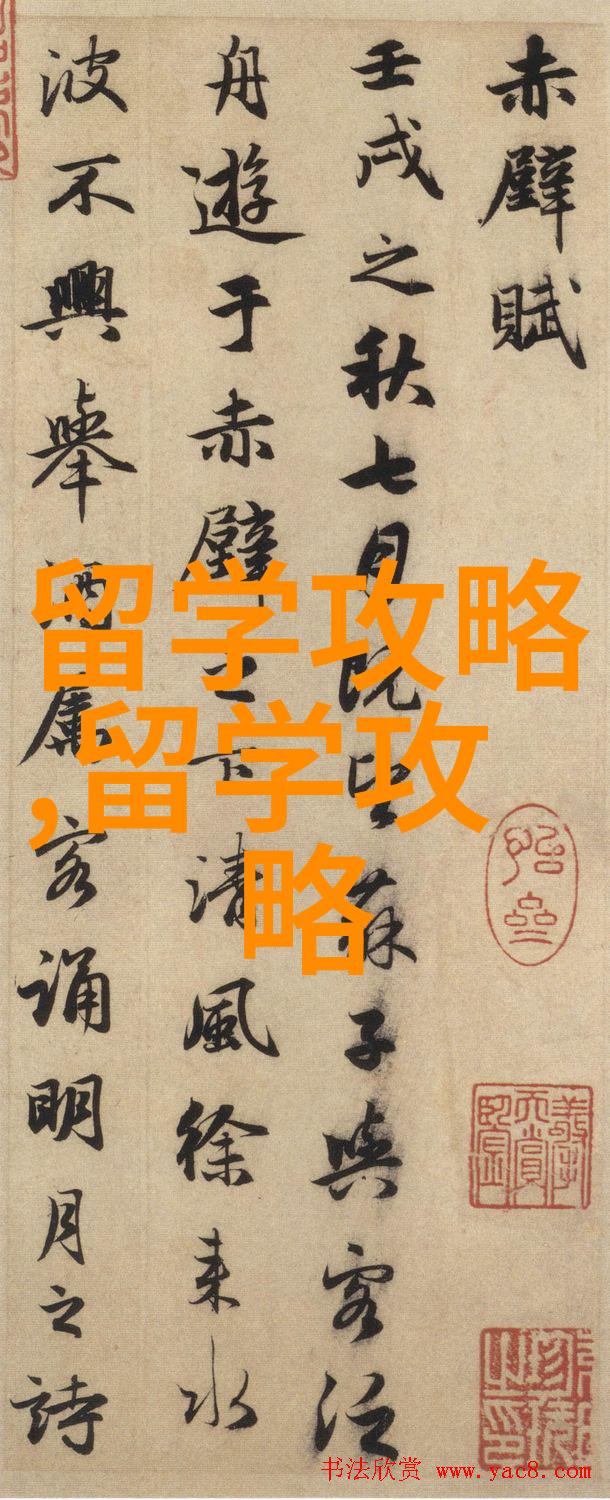 赤壁賦
壬戌之秋七月既望蘇子與客泛
舟遊于赤壁之下清風徐来水
波不興舉酒屬客誦明月之詩
留学攻略
,留学攻
略
书法欣赏 www.yac8.com